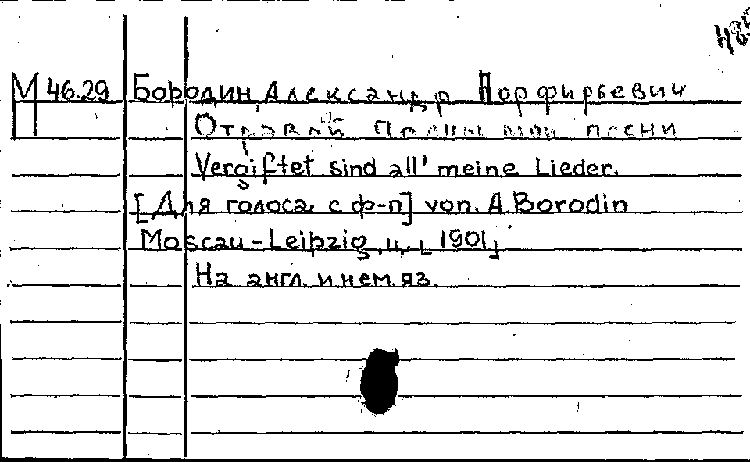 489
М 46.29 Бородин, Александр Порфирьевич
Отравой полны мои песни
Vergiftet sind all' meine Lieder.
[Для голоса с ф-п] von A. Borodin
Moscau-Leipzig, ц. [1901]
На англ. и нем. яз.